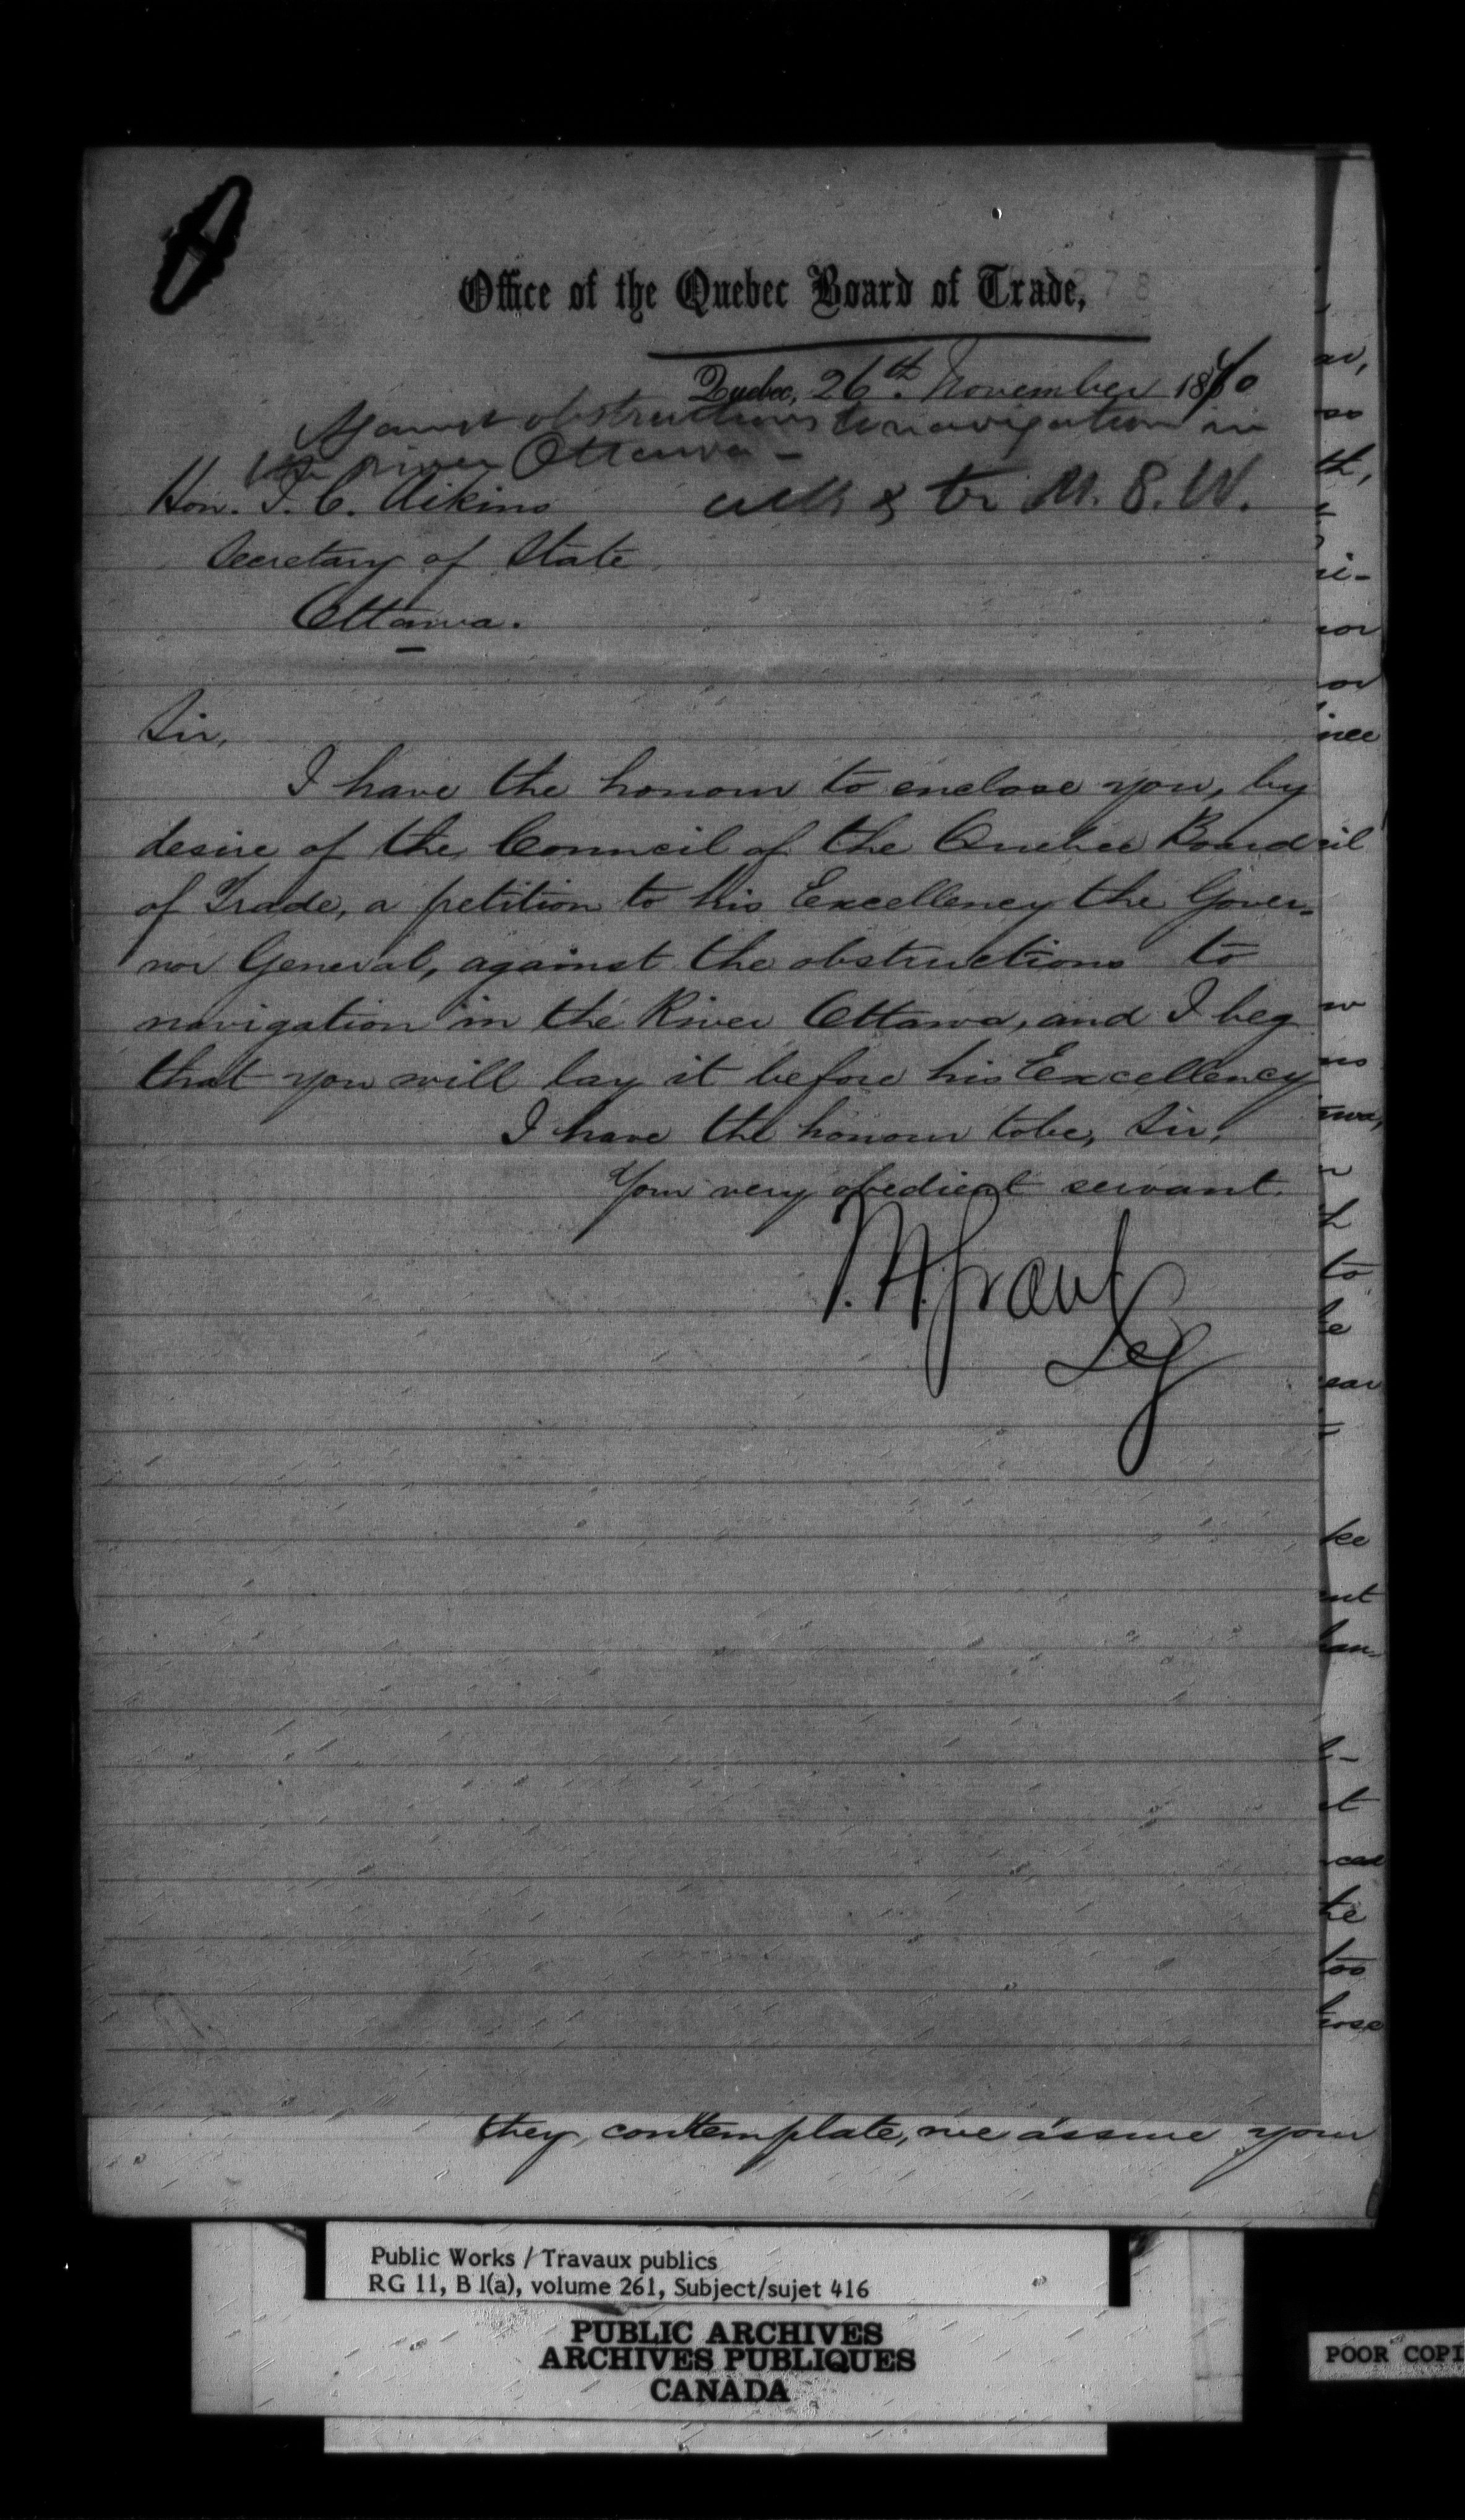 Office of the Quebec Board of Trade,
Quebec, 26th. November 1870
Against obstructions to navigation in
the river Ottawa -
Hon. J. C. Aikins
ack & tr M. P. W.
Secretary of State
Ottawa.
Sir,
I have the honour to enclose you, by
desire of the Council of the Quebec Board
of Trade, a petition to his Excellency the Gover-
nor General, against the obstructions to
navigation in the River Ottawa, and I beg
that you will lay it before his Excellency
I have the honour to be, Sir,
Your very obedient servant.
Secy
they contemplate, we assure your
Public Works / Travaux publics
RG 11, B 1(a), volume 261, Subject/sujet 416
PUBLIC ARCHIVES
ARCHIVES PUBLIQUES
CANADA
POOR COPI